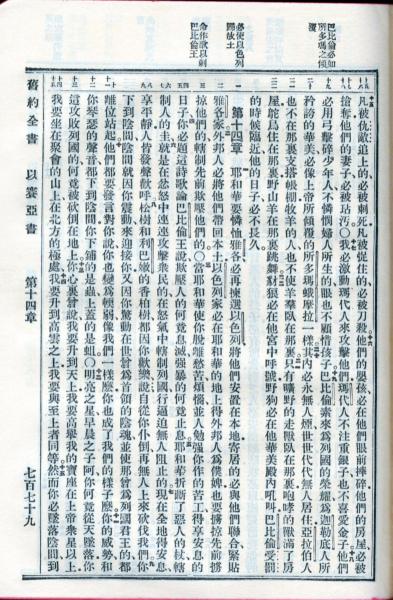 巴比倫必如
所多瑪之傾
覆
必使以色列
歸故土
令作歌以刺
巴比倫王
凡被仇敵追上的必被刺死凡被捉住的必被刀殺他們的嬰孩必在他們眼前摔碎他們的房屋必被
搶奪他們的妻子必被玷污〇我必激動瑪代人來攻擊他們瑪代人不注重銀子也不喜愛金子他們
必用弓擊碎少年人不憐憫婦人所生的眼也不顧惜孩子巴比倫素來爲列國的榮耀爲迦勒底人所
矜誇的華美必像上帝所傾覆的所多瑪蛾摩拉一樣其內必永無人煙世世代代無人居住亞拉伯人
也不在那裏支搭帳棚牧羊的人也不使羊羣臥在那裏只有曠野的走獸臥在那裏咆哮的獸滿了房
屋鴕鳥住在那裏野山羊在那裏跳舞豺狼必在他宮中呼號野狗必在他華美殿內吼叫巴比倫受罰
的時候臨近他的日子必不長久
第十四章 耶和華要憐恤雅各必再揀選以色列將他們安置在本地寄居的必與他們聯合緊貼
雅各家外邦人必將他們帶回本土以色列家必在耶和華的地上得外邦人爲僕婢也要擄掠先前擄
掠他們的轄制先前欺壓他們的〇當耶和華使你脫離愁苦煩惱並人勉強你作的苦工得享安息的
日子你必題這詩歌論巴比倫王說欺壓人的何竟息滅強暴的何竟止息耶和華折斷了惡人的杖轄
制人的圭就是在忿怒中連連攻擊衆民的在怒氣中轄制列國行逼迫無人阻止的現在全地得安息
享平靜人皆發聲歡呼松樹和利巴嫩的香柏樹都因你歡樂說自從你仆倒再無人上來砍伐我們你
下到陰間陰間就因你震動來迎接你又因你驚動在世曾爲首領的陰魂並使那曾爲列國君王的都
離位站起他們都要對你說你也變爲軟弱像我們一樣麼你也成了我們的樣子麼你的威勢和
你琴瑟的聲音都下到陰間你下鋪的是蟲上蓋的是蛆〇明亮之星早晨之子阿你何竟從天墜落你
這攻敗列國的何竟被砍倒在地上你心裏曾說我要升到天上我要高擧我的寶座在上帝衆星以上
我要坐在聚會的山上在北方的極處我要升到高雲之上我要與至上者同等然而你必墜落陰間到
舊約全書 以賽亞書 第十四章 七百七十九